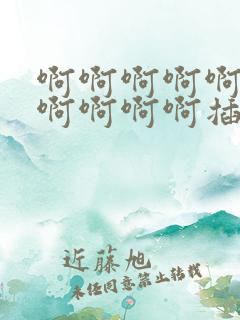 啊啊啊啊啊
啊啊啊啊插
近藤旭
未经同意禁止转载